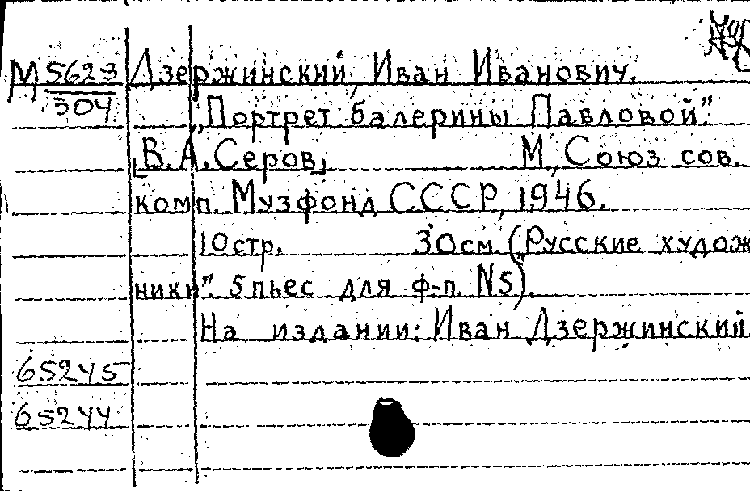 М 5623 Дзержинский, Иван Иванович.
304 „Портрет балерины Павловой".
[В. А. Серов] М., Союз сов.
комп. Музфонд СССР, 1946.
10 стр. 30 см. („Русские худож
ники". 5 пьес для ф-п. N5).
На издании: Иван Дзержинский
65245
65244